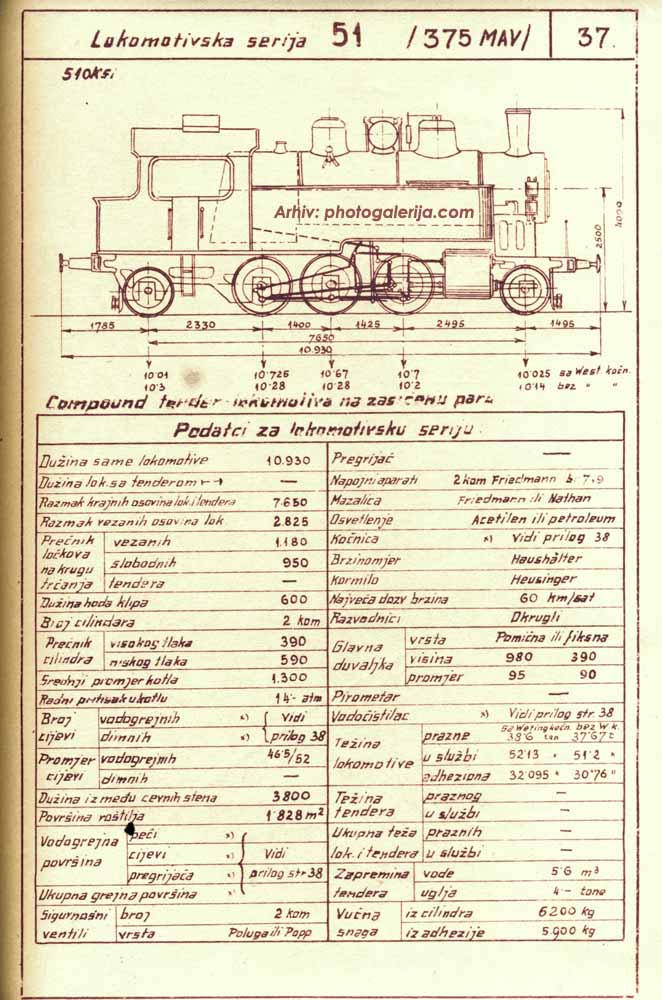 Lokomotivska serija 51 /375 MAV/ 37.
510ksi
Arhiv: photogalerija.com
4000
2500
1785 2330 1400 1425 2495 1495
7650
10.930
10·01 10·725 10·67 10·7 10·025 sa West. kočn.
10·3 10·28 10·28 10·2 10·14 bez " "
Compound tender-lokomotiva na zasićenu paru
Podatci za lokomotivsku seriju:
Dužina same lokomotive 10.930
Dužina lok.sa tenderom —
Razmak krajnih osovina lok.i tendera 7·650
Razmak vezanih osovina lok. 2.825
Prečnik ločkova na krugu trčanja
vezanih 1.180
slobodnih 950
tendera —
Dužina hoda klipa 600
Broj cilindara 2 kom
Prečnik cilindra
visokog tlaka 390
niskog tlaka 590
Srednji promjer kotla 1.300
Radni pritisak u kotlu 14·- atm
Broj cijevi
vodogrejnih x) Vidi
dimnih x) prilog 38
Promjer cijevi
vodogrejnih 46·5/52
dimnih —
Dužina između cevnih stena 3800
Površina roštilja 1·828 m²
Vodogrejna površina
peći x)
cijevi x) Vidi
pregrijača x) prilog str 38
Ukupna grejna površina x)
Sigurnosni ventili
broj 2 kom
vrsta Poluga ili Popp
Pregrijač —
Napojni aparati 2 kom Friedmann
Mazalica Friedmann ili Nathan
Osvetlenje Acetilen ili petroleum
Kočnica x) Vidi prilog 38
Brzinomjer Haushälter
Kormilo Heusinger
Najveća dozv brzina 60 km/sat
Razvodnici Okrugli
Glavna duvaljka
vrsta Pomična ili fiksna
visina 980 390
promjer 95 90
Pirometar —
Vodočistilac x) Vidi prilog str. 38
Težina lokomotive
sa Westing kočn. bez W.k.
prazne 38·6 ton 37·67 t
u službi 52·13 " 51·2 "
adheziona 32·095 " 30·76 "
Težina tendera
praznog —
u službi —
Ukupna teža lok. i tendera
praznih —
u službi —
Zapremina tendera
vode 5·6 m³
uglja 4·- tone
Vučna snaga
iz cilindra 6200 kg
iz adhezije 5.900 kg